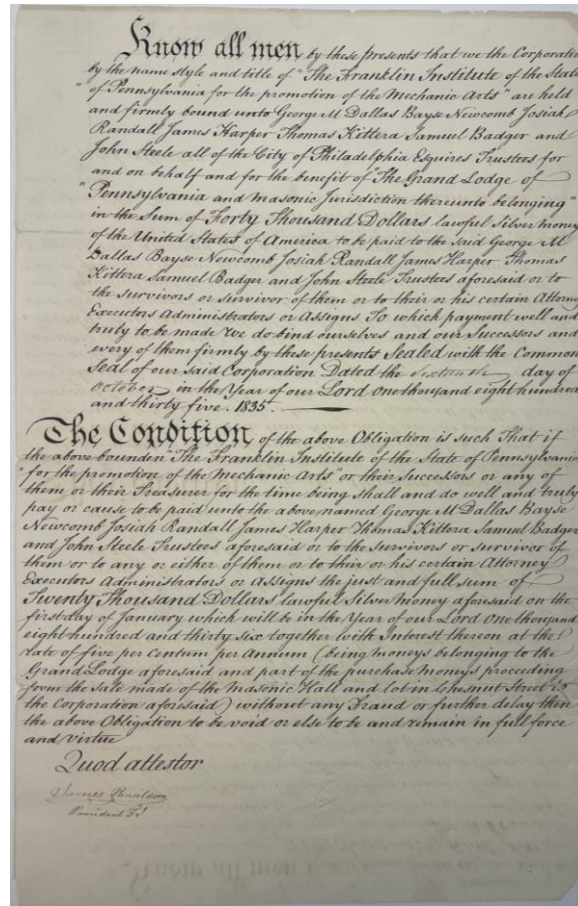 Know all men by these presents that we the Corporation
by the name style and title of "The Franklin Institute of the State
"of Pennsylvania for the promotion of the Mechanic Arts" are held
and firmly bound unto George M Dallas Bayse Newcomb Josiah
Randall James Harper Thomas Kittera Samuel Badger and
John Steele all of the City of Philadelphia Esquires Trustees for
and on behalf and for the benefit of "The Grand Lodge of
"Pennsylvania and Masonic Jurisdiction thereunto belonging"
in the Sum of Forty Thousand Dollars lawful Silver money
of the United States of America to be paid to the said George M
Dallas Bayse Newcomb Josiah Randall James Harper Thomas
Kittera Samuel Badger and John Steele Trustees aforesaid or to
the survivors or survivor of them or to their or his certain Attorney
Executors Administrators or Assigns To which payment well and
truly to be made We do bind ourselves and our Successors and
every of them firmly by these presents Sealed with the Common
Seal of our said Corporation Dated the sixteenth day of
October in the Year of our Lord One thousand eight hundred
and thirty five. 1835.
The Condition of the above Obligation is such That if
the above bounden "The Franklin Institute of the State of Pennsylvania
"for the promotion of the Mechanic Arts" or their Successors or any of
them or their Treasurer for the time being shall and do well and truly
pay or cause to be paid unto the above named George M Dallas Bayse
Newcomb Josiah Randall James Harper Thomas Kittera Samuel Badger
and John Steele Trustees aforesaid or to the survivors or survivor of
them or to any or either of them or to their or his certain Attorney
Executors Administrators or Assigns the just and full sum of
Twenty Thousand Dollars lawful Silver Money aforesaid on the
first day of January which will be in the Year of our Lord One thousand
eight hundred and thirty six together with Interest thereon at the
rate of five per Centum per Annum (being moneys belonging to the
Grand Lodge aforesaid and part of the purchase moneys proceeding
from the sale made of the Masonic Hall and lot in Chesnut Street to
the Corporation aforesaid) without any Fraud or further delay then
the above Obligation to be void or else to be and remain in full force
and virtue
Quod attestor
James Ronaldson
President F.I